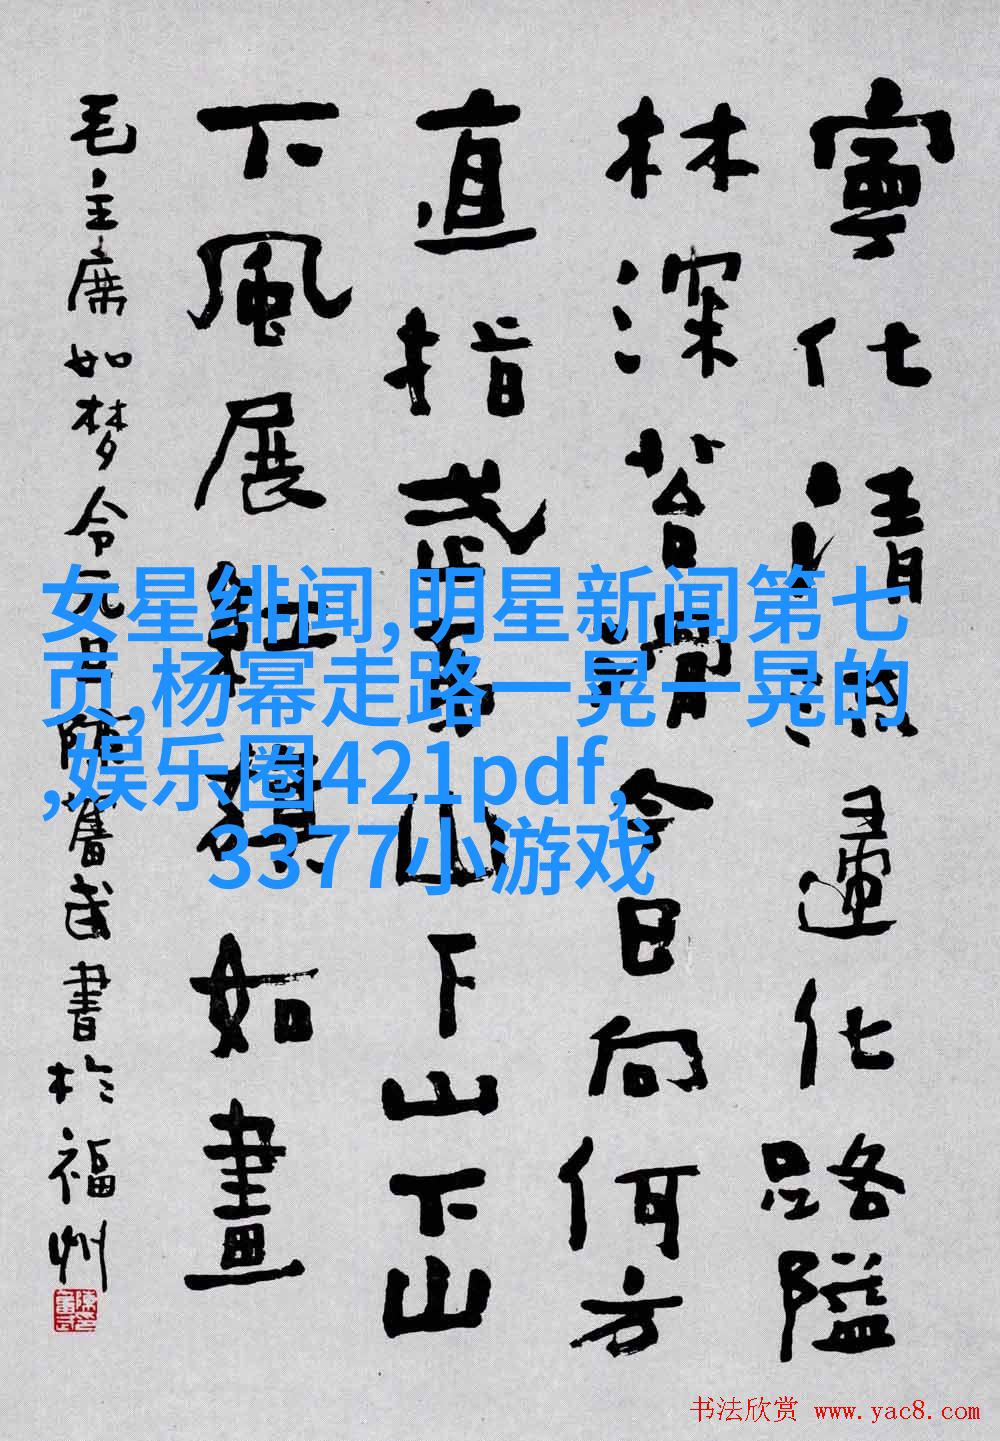 寧化清流歸化路隘
林深苔滑今日向何方
直指武夷山下山下山
下風展紅旗如畫
毛主席如梦令元旦陈奮武書於福州
女星绯闻,明星新闻第七
页,杨幂走路一晃一晃的
,娱乐圈421pdf,
3377小游戏
书法欣赏 www.yac8.com